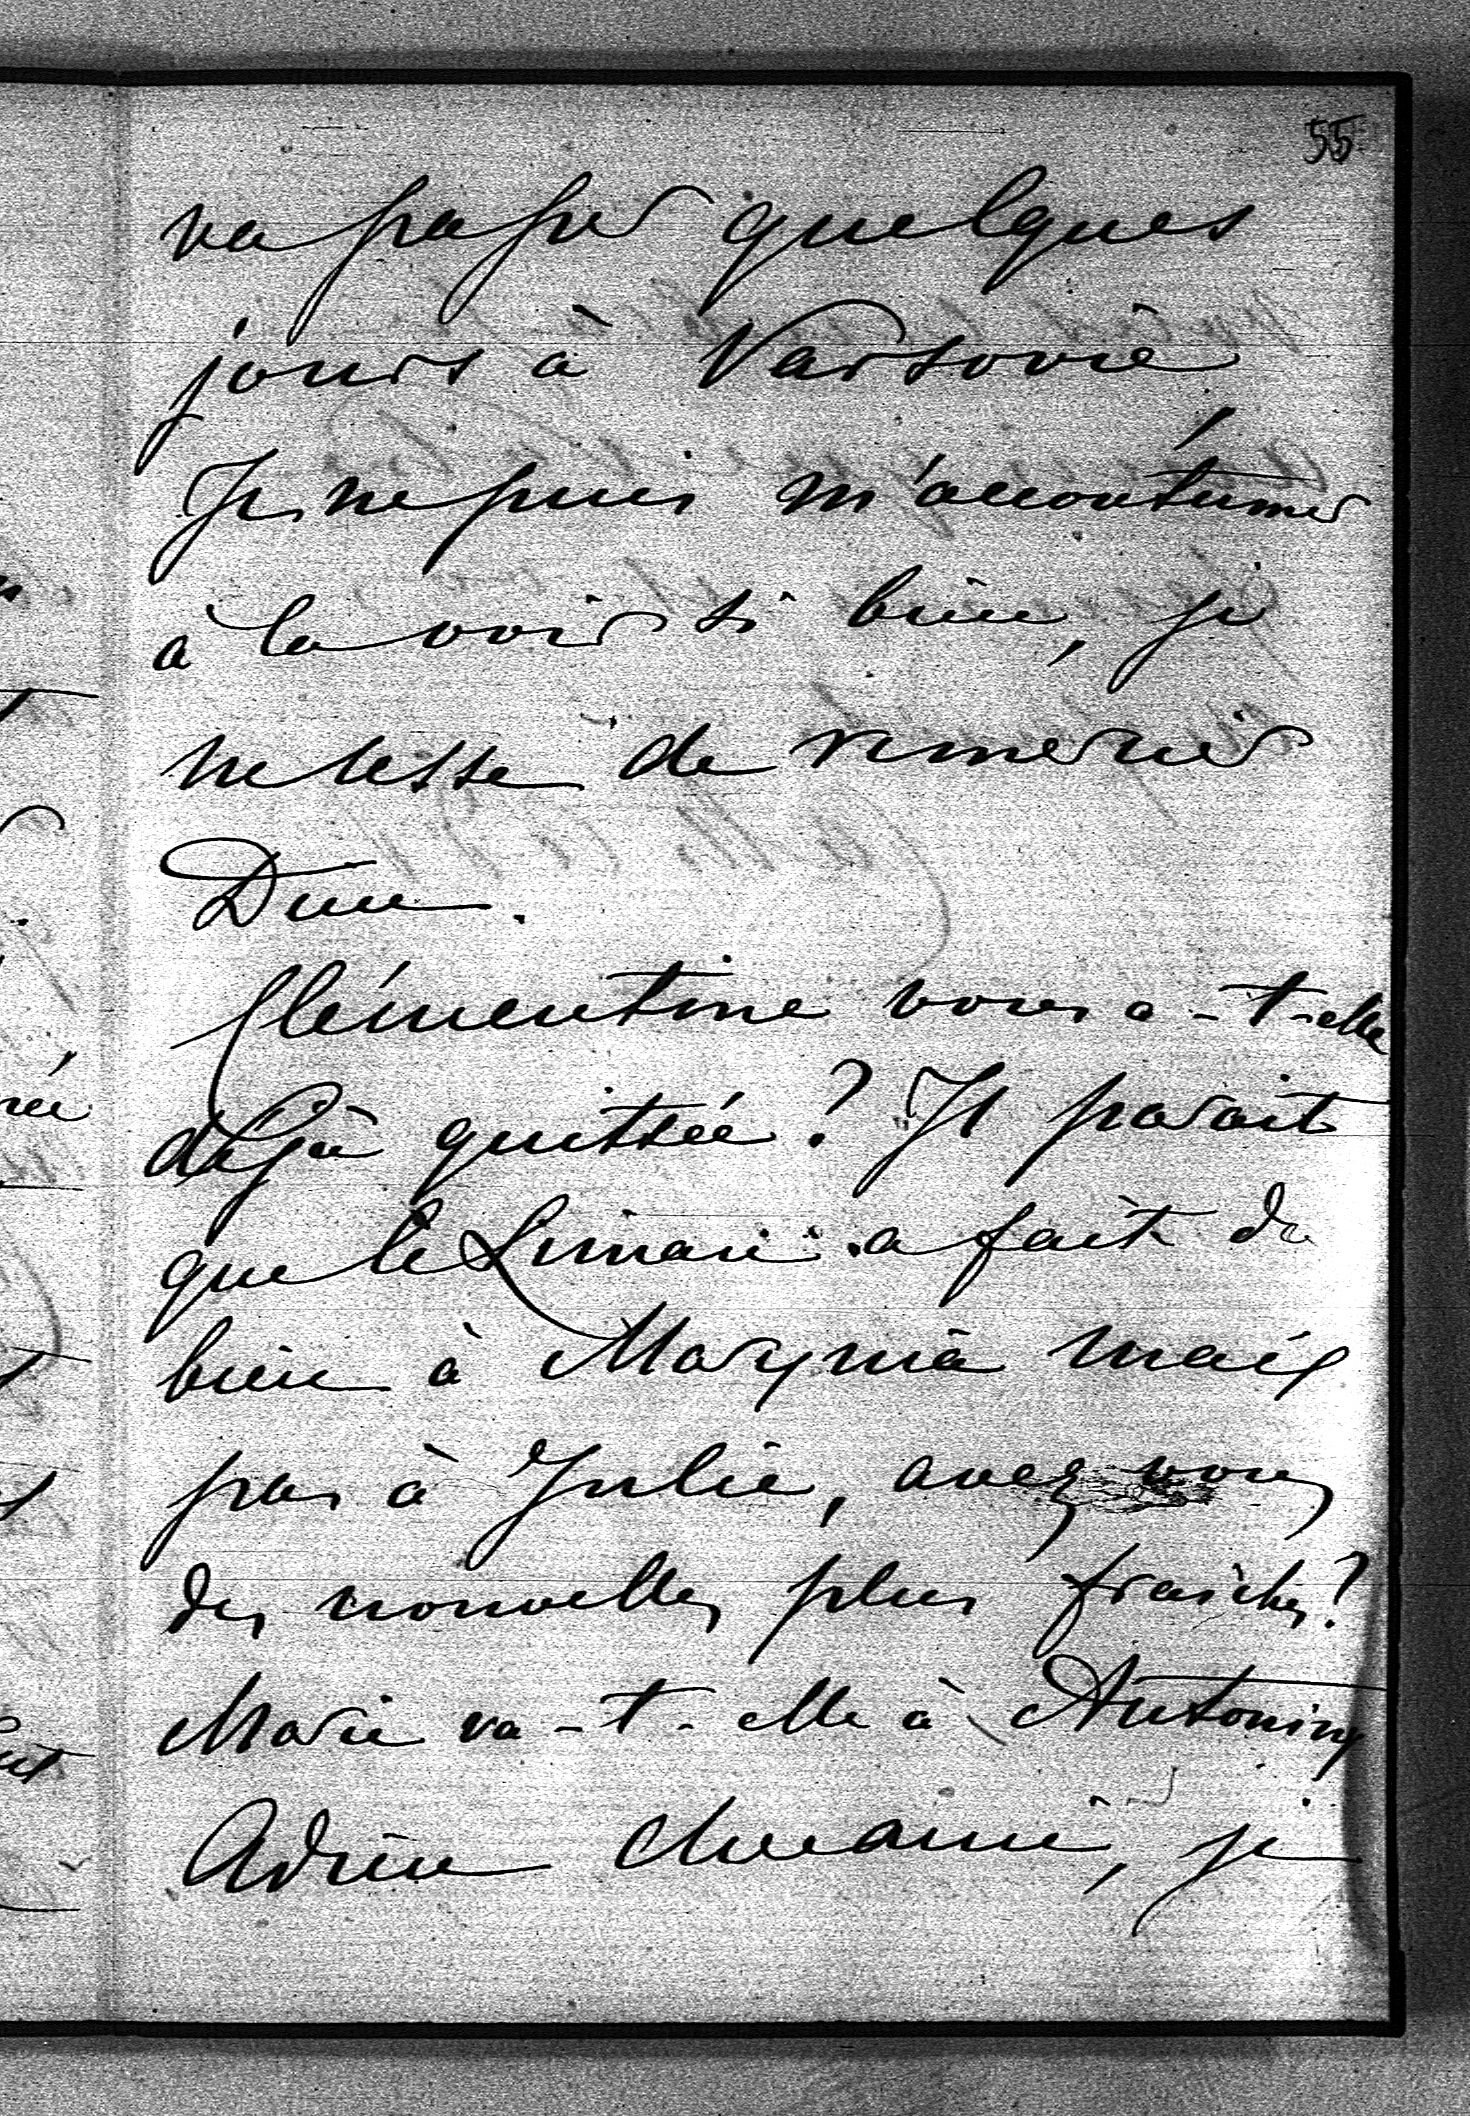 55
va passer quelques
jours à Varsovie
Je ne puis m'accoutumer
à la voir si bien, je
ne cesse de remercier
Dieu.
Clémentine vous a-t-elle
déjà quittée? Il parait
que le Liman a fait du
bien à Marynia mais
pas à Julie, avez vous
des nouvelles plus fraiches?
Marie va-t-elle à Antoniny
Adieu chère amie, je